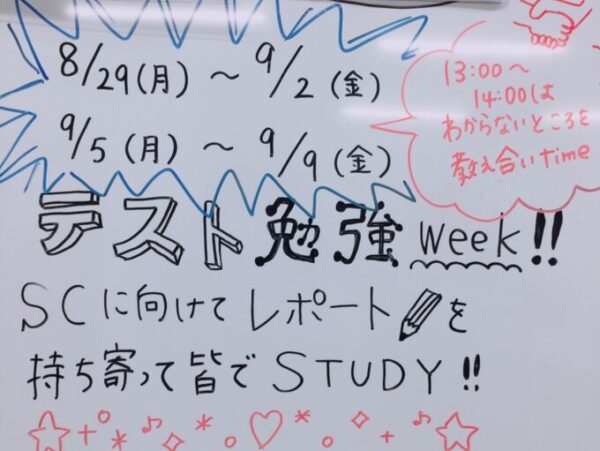 8/29(月) ～ 9/2(金)
9/5(月) ～ 9/9(金)
13:00～
14:00は
わからないところを
教え合いtime
テスト勉強week!!
SCに向けてレポートを
持ち寄って皆でSTUDY!!